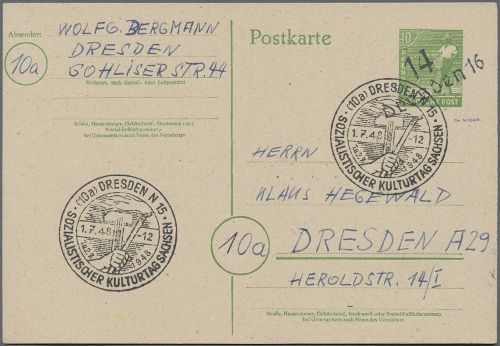 Absender:
WOLFG. BERGMANN
DRESDEN
GOHLISERSTR. 44
10a
Wohnort, auch Zustell- oder Leitpostamt
Straße, Hausnummer, Gebäudeteil, Stockwerk oder
Postschließfachnummer;
bei Untermietern auch Name des Vermieters
Postkarte
10
14
Dresden 16
POST
(10a) DRESDEN N 15
1.7.48 -12
1948
SOZIALISTISCHER KULTURTAG SACHSEN
HERRN
KLAUS HEGEWALD
10a
DRESDEN A29
HEROLDSTR. 14/I
Straße, Hausnummer, Gebäudeteil, Stockwerk oder Postschließfachnummer;
bei Untermietern auch Name des Vermieters
(10a) DRESDEN N 15
1.7.48 -12
1948
SOZIALISTISCHER KULTURTAG SACHSEN